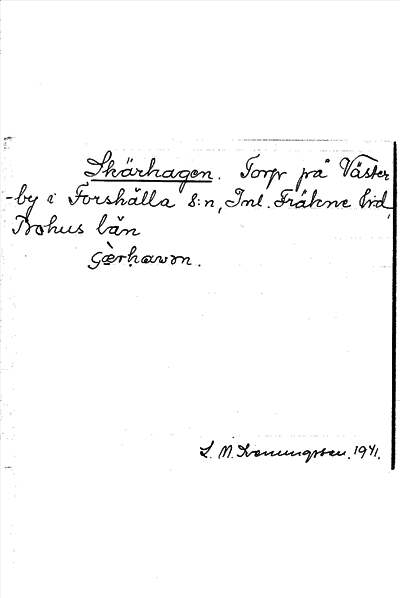 Skärhagen. Torp på Väster
-by i Forshälla s:n, Inl. Fräkne hd,
Bohus län
L. M. 1941.